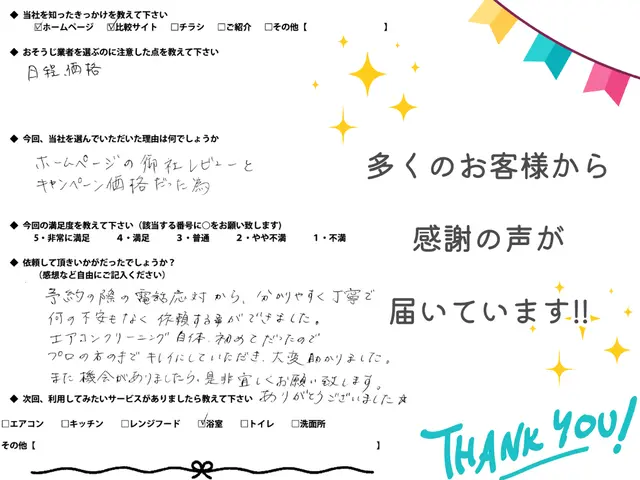 ◆ 当社を知ったきっかけを教えて下さい
☑ホームページ ☑比較サイト □チラシ □ご紹介 □その他【 】
◆ おそうじ業者を選ぶのに注意した点を教えて下さい
日程 価格
◆ 今回、当社を選んでいただいた理由は何でしょうか
ホームページの御社レビューと
キャンペーン価格だった為
◆ 今回の満足度を教えて下さい（該当する番号に○をお願い致します）
5・非常に満足 4・満足 3・普通 2・やや不満 1・不満
◆ 依頼して頂きいかがだったでしょうか？
（感想など自由にご記入ください）
予約の際の電話応対から、分かりやすく丁寧で
何の不安もなく依頼する事ができました。
エアコンクリーニング自体、初めてだったので
プロの方の手でキレイにしていただき、大変助かりました。
また機会がありましたら、是非宜しくお願い致します。
ありがとうございました☆
◆ 次回、利用してみたいサービスがありましたら教えて下さい
□エアコン □キッチン □レンジフード ☑浴室 □トイレ □洗面所
その他【 】
多くのお客様から
感謝の声が
届いています!!
THANK YOU!